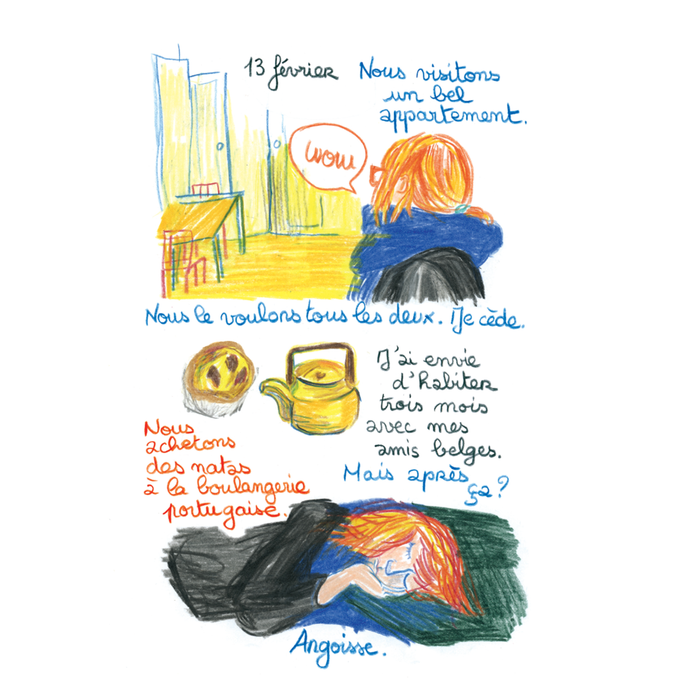 13 février
Nous visitons
un bel
appartement.
wow
Nous le voulons tous les deux. Je cède.
J'ai envie
d'habiter
trois mois
avec mes
amis belges.
Mais après
ça?
Nous
achetons
des natas
à la boulangerie
portugaise.
Angoisse.